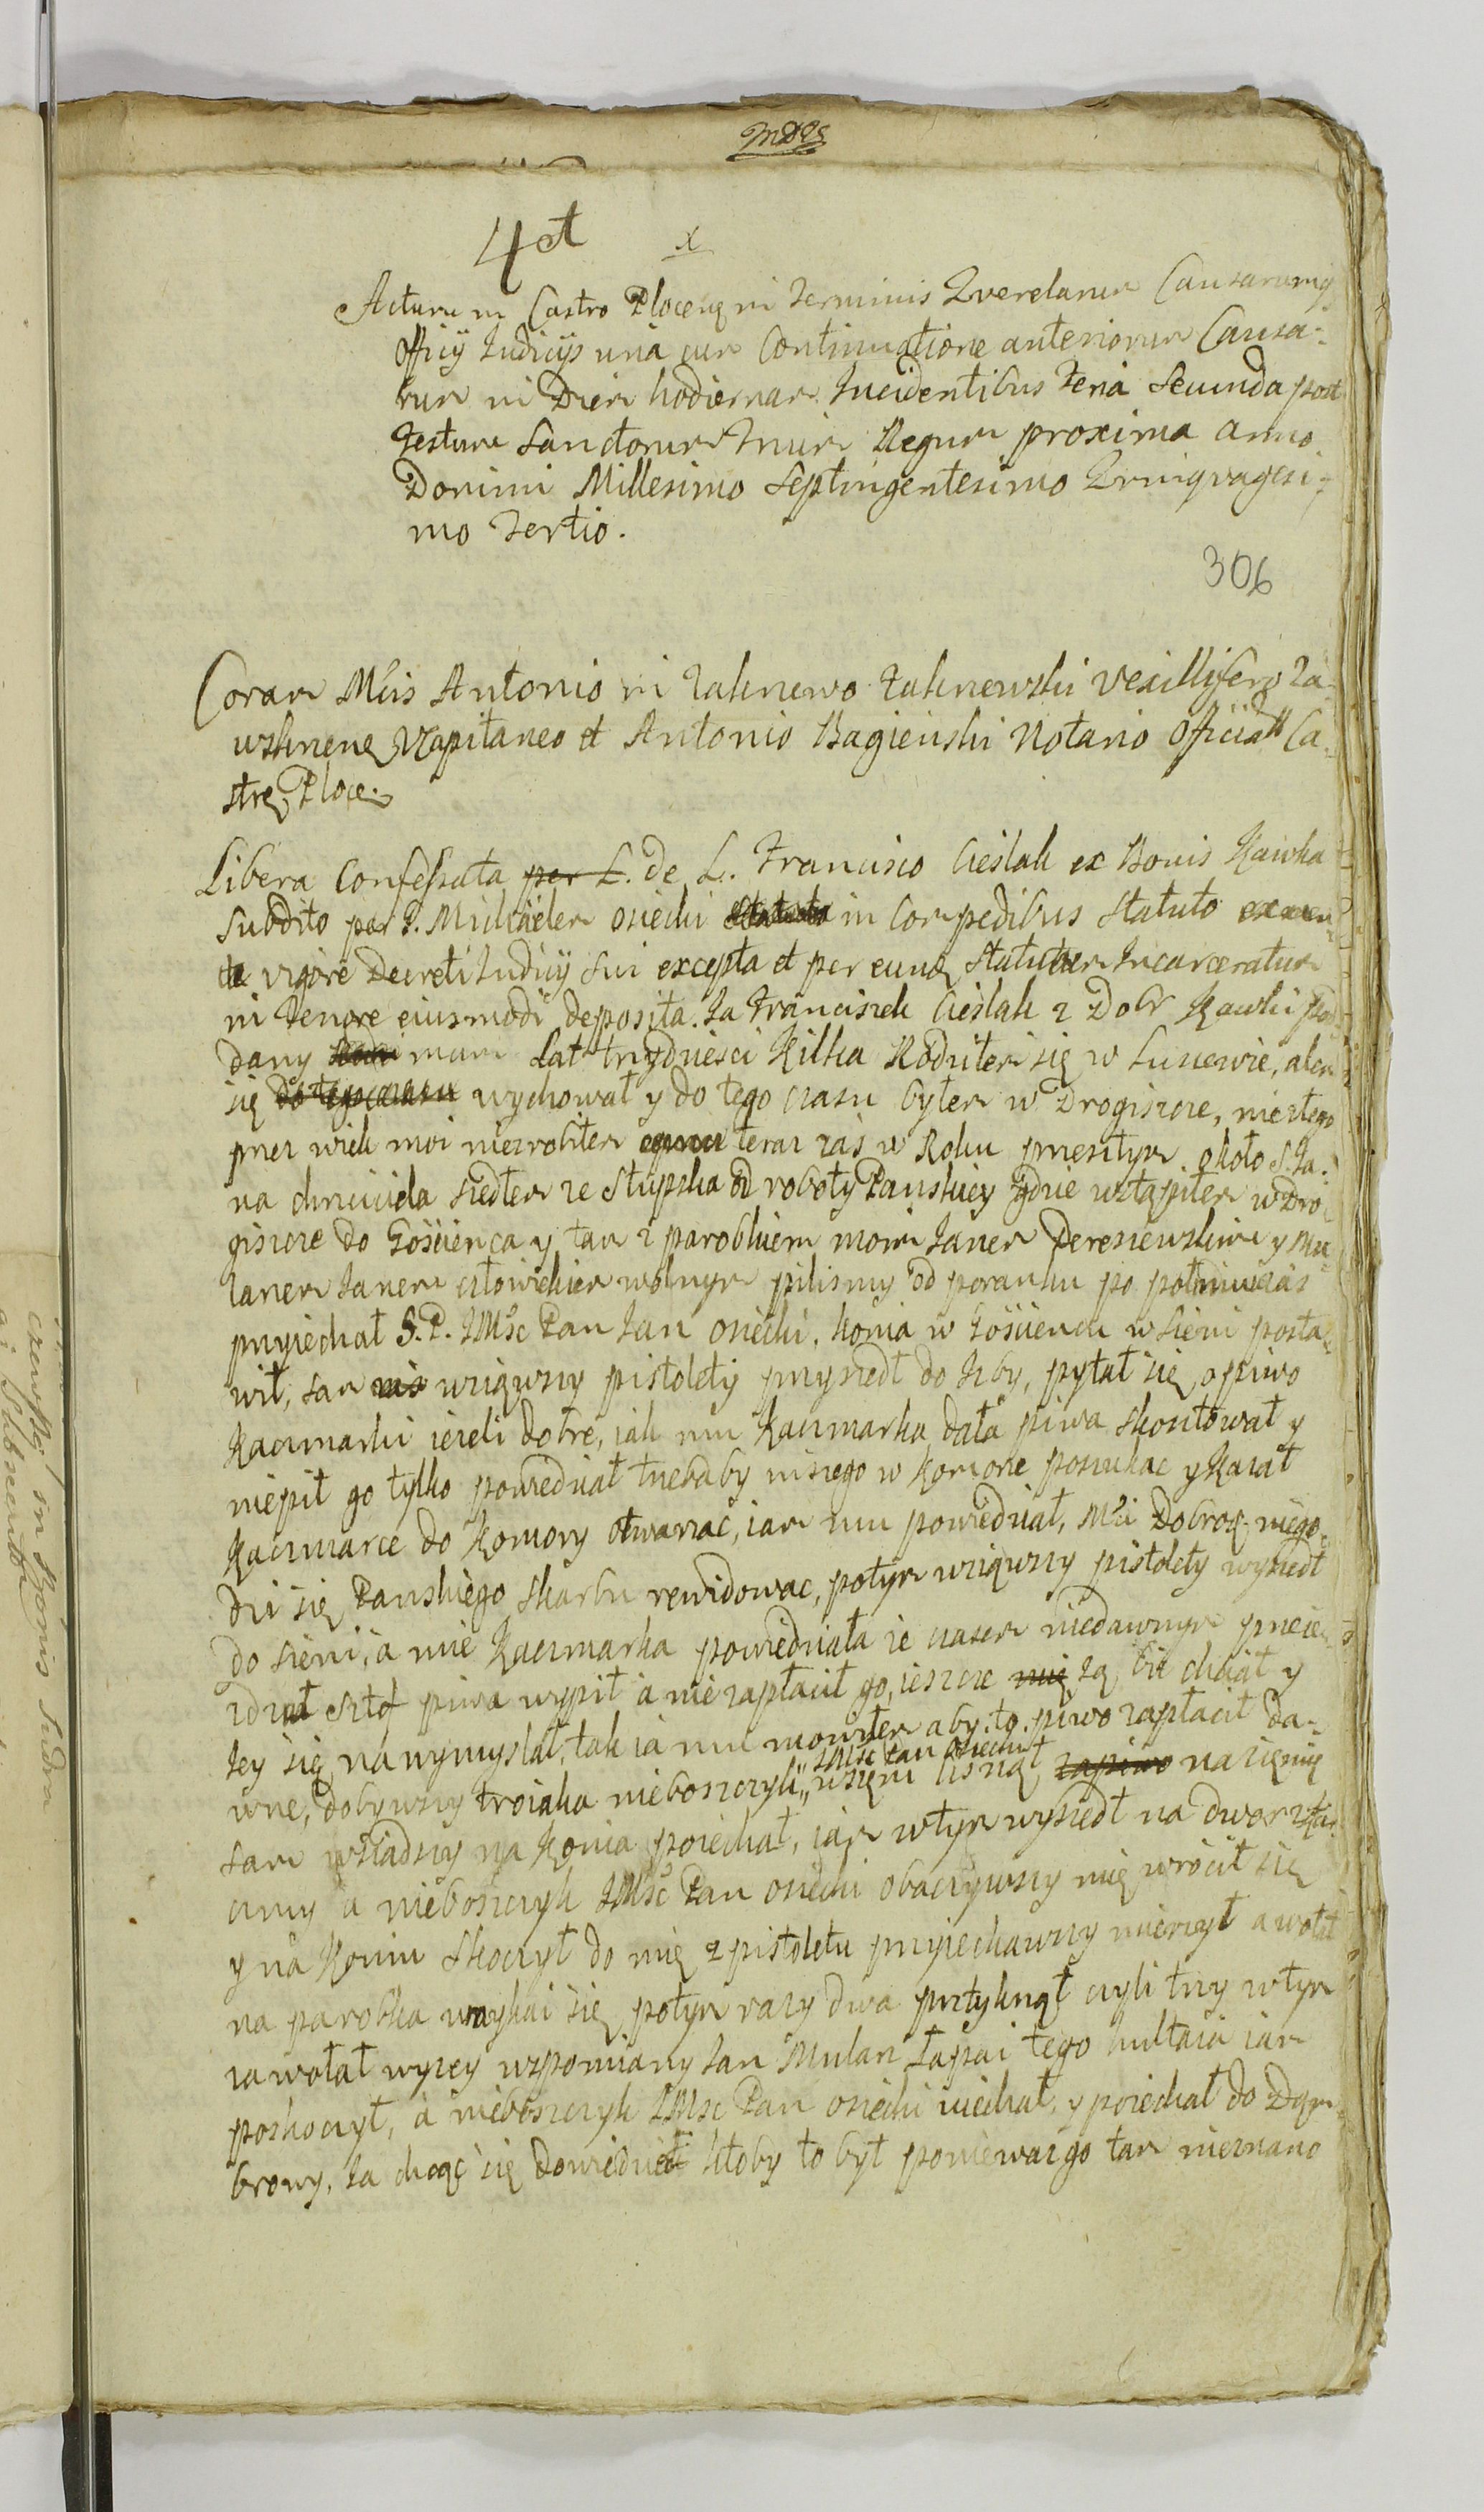 4et x
Actum in Castro Plocen in Terminis Querelarum Causarumq
Officij Judicijs una cum Continuatione anteriorum Causa-
rum in Diem hodiernam Incidentibus Feria Secunda post
Festum Sanctorum Trium Regum proxima Anno
Domini Millesimo Septingentesimo Quinquagesi-
mo Tertio.
306
Coram Mcis Antonio in Antonio Vexillifero Za-
wskrnene VCapitaneo et Antonio Bagieński Notario Officialt Ca-
stre Ploce.
Libera Confessata per L. de L. Francisco Cieslak ex Bonis Kawka
Subdito per G. Michaelem Osiecki in Compedibus Statuto
vigore Decreti Judicij sui excepta et per eunq Statutum Incarceratum
in Tenore eiusmodi deposita. Ja Franciszek Cieslak z Dobr Kawki Pod
dany mam Lat trzydziesci Kilka Rodziłem się w Lunewie, alem
się do tego czasu wychował y do tego czasu byłem w Drogiszcze, nic złego
przez wiek moi niezrobiłem teraz zaś w Roku przeszłym około S. Ja-
na chrzciciela siedłem ze Słupska od roboty Panskiey gdzie wstąpiłem w Dro
giszcze do Gościenca y tam z parobkiem moim Janem Dereszewskim y Mu
larzem Janem człowiekiem wolnym piliśmy od poranku po południu zaś
przyiechał S. P. JMSc Pan Jan Osiecki, konia w Gościencu w Sieni posta-
wił, sam wziąwszy pistolety przyszedł do Izby, pytał się o piwo
Kaczmarki iezeli dobre, iak mu Kaczmarka dała piwa skosztował y
niepił go tylko powiedział trzebaby inszego w Komorze poszukac y Kazał
Kaczmarce do Komory otwarzać, iam mu powiedział, Mci Dobroq niego-
dzi się Panskiego skarbu rewidowac, potym wziąwszy pistolety wyszedł
do sieni, a mie Kaczmarka powiedziała że czasem niedawnym przeie-
zdzał sztof piwa wypił a nie zapłacił go, ieszcze mię Ią bic chciał y
Iey się nawymyslał, tak ia mu mowiłem aby to piwo zapłacił da-
wne, dobywszy troiaka nieboszczyk JMSc Pan Osiecki wsieni Cisnął zapiwo na ziemię
sam wsiadszy na Konia poiechał, iam wtym wyszedł na dwor z Kar-
czmy a nieboszczyk JMSc Pan Osiecki obaczywszy mię wrócił się
y na Koniu skoczył do mię z pistoletu przyiechawszy mierzył a wołał
na parobka umykai się potym razy dwa przytknął czyli trzy wtym
zawołał wyzey wspomiany Jan Mularz Łapai tego hultaia iam
poskoczył, a nieboszczyk JMSc Pan Osiecki uciekał, y poiechał do Dąm
browy, Ja chcąc się dowiedzieć ktoby to był poniewaz go tam nieznano